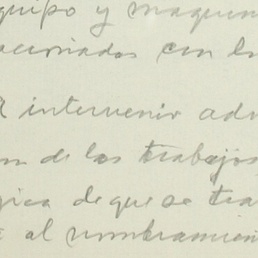 quipo y maquin
acionados con la
intervenir adm
on de los trabajos
gica de que se tra
al nombramien